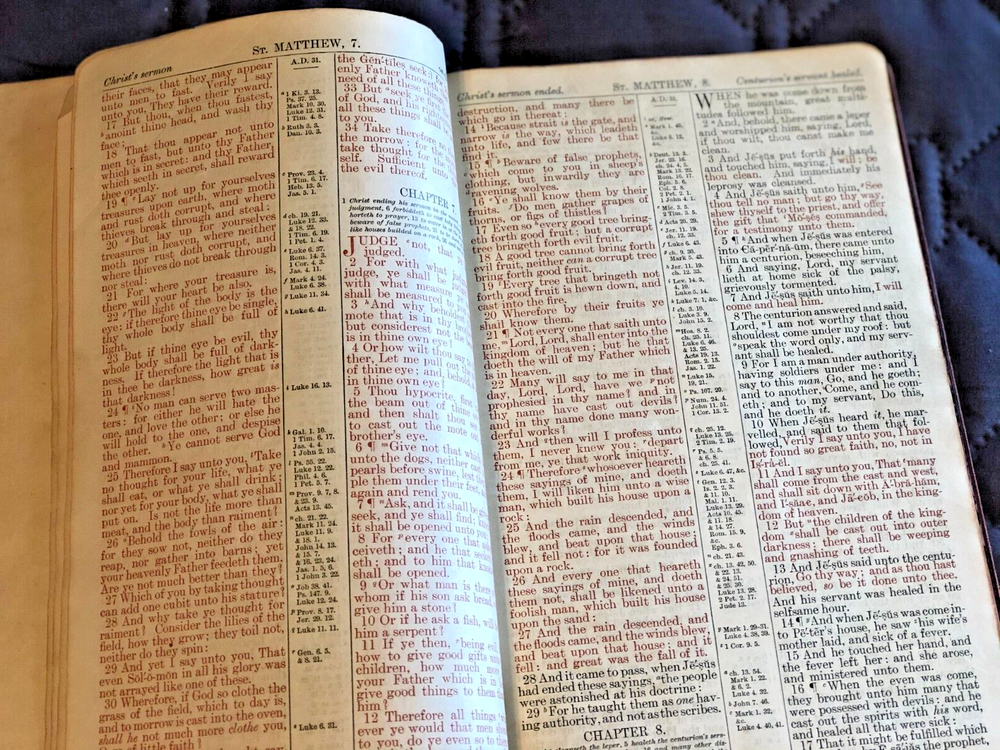 St. MATTHEW, 7.
Christ's sermon
their faces, that they may appear
unto men to fast. Verily I say
unto you, They have their reward.
17 But thou, when thou fastest,
anoint thine head, and wash thy
face;
18 That thou appear not unto
men to fast, but unto thy Father
which is in secret: and thy Father
which seeth in secret, shall reward
thee openly.
19 ¶ Lay not up for yourselves
treasures upon earth, where moth
and rust doth corrupt, and where
thieves break through and steal:
20 But lay up for yourselves
treasures in heaven, where neither
moth nor rust doth corrupt, and
where thieves do not break through
nor steal:
21 For where your treasure is,
there will your heart be also.
22 The light of the body is the
eye: if therefore thine eye be single,
thy whole body shall be full of
light.
23 But if thine eye be evil, thy
whole body shall be full of dark-
ness. If therefore the light that is
in thee be darkness, how great is
that darkness!
24 ¶ No man can serve two mas-
ters: for either he will hate the
one, and love the other; or else he
will hold to the one, and despise
the other. Ye cannot serve God
and mammon.
25 Therefore I say unto you, Take
no thought for your life, what ye
shall eat, or what ye shall drink;
nor yet for your body, what ye shall
put on. Is not the life more than
meat, and the body than raiment?
26 Behold the fowls of the air:
for they sow not, neither do they
reap, nor gather into barns; yet
your heavenly Father feedeth them.
Are ye not much better than they?
27 Which of you by taking thought
can add one cubit unto his stature?
28 And why take ye thought for
raiment? Consider the lilies of the
field, how they grow; they toil not,
neither do they spin:
29 And yet I say unto you, That
even Sŏl-ŏ-mon in all his glory was
not arrayed like one of these.
30 Wherefore, if God so clothe the
grass of the field, which to day is,
and to morrow is cast into the oven,
shall he not much more clothe you,
of little faith?
A.D. 31.
1 Ki. 3. 13.
Ps. 37. 25.
Mark 10. 30.
Luke 12. 31.
1 Tim. 4. 8.
Ruth 3. 3.
Dan. 10. 3.
Prov. 23. 4.
1 Tim. 6. 17.
Heb. 13. 5.
Jas. 5. 1.
ch. 19. 21.
Luke 12. 33.
& 18. 22.
1 Tim. 6. 19.
1 Pet. 1. 4.
Luke 6. 37.
Rom. 14. 3.
1 Cor. 4. 3.
Jas. 4. 11.
Mark 4. 24.
Luke 6. 38.
Luke 11. 34.
Luke 6. 41.
Luke 16. 13.
Gal. 1. 10.
1 Tim. 6. 17.
Jas. 4. 4.
1 John 2. 15.
Ps. 55. 22.
Luke 12. 22.
Phil. 4. 6.
1 Pet. 5. 7.
Prov. 9. 7, 8.
& 23. 9.
Acts 13. 45.
ch. 21. 22.
Mark 11. 24.
Luke 11. 9.
& 18. 1.
John 14. 13.
& 15. 7.
& 16. 23, 24.
Jas. 1. 5, 6.
1 John 3. 22.
Job 38. 41.
Ps. 147. 9.
Luke 12. 24.
Prov. 8. 17.
Jer. 29. 12.
Luke 11. 11.
Gen. 6. 5.
& 8. 21.
Luke 6. 31.
the Gĕn-tiles seek
only Father know
need of all these th
33 But seek ye fir
of God, and his righ
all these things shall b
to you.
34 Take therefore no
the morrow: for the mo
take thought for the
self. Sufficient unto
the evil thereof.
CHAPTER 7
1 Christ ending his sermon
judgment, 6 forbiddeth
horteth to prayer, 13
beware of false prophets, 21
like houses builded on a rock,
JUDGE not, that
judged.
2 For with what jud
judge, ye shall be jud
with what measure ye
shall be measured to
3 And why beholdest
mote that is in thy bro
but considerest not the
is in thine own eye?
4 Or how wilt thou say
ther, Let me pull out the
of thine eye; and, behold,
in thine own eye?
5 Thou hypocrite, first
the beam out of thine
and then shalt thou see
to cast out the mote out
brother's eye.
6 ¶ Give not that which
unto the dogs, neither cast
pearls before swine, lest
ple them under their feet,
again and rend you.
7 ¶ Ask, and it shall be giv
seek, and ye shall find; knock
it shall be opened unto you:
8 For every one that
ceiveth; and he that seek
eth; and to him that knock
shall be opened.
9 Or what man is there
whom if his son ask bread,
give him a stone?
10 Or if he ask a fish, will
him a serpent?
11 If ye then, being evil,
how to give good gifts unto
children, how much more
your Father which is in
give good things to them
him?
12 Therefore all things
ever ye would that men
to you, do ye even so to
Christ's sermon ended.
St. MATTHEW, 8.
Centurion's servant healed.
struction, and many there be
which go in thereat:
14 Because strait is the gate, and
narrow is the way, which leadeth
unto life, and few there be that
find it.
15 ¶ Beware of false prophets,
which come to you in sheep's
clothing, but inwardly they are
ravening wolves.
16 Ye shall know them by their
fruits. Do men gather grapes of
thorns, or figs of thistles?
17 Even so every good tree bring-
eth forth good fruit; but a corrupt
tree bringeth forth evil fruit.
18 A good tree cannot bring forth
evil fruit, neither can a corrupt tree
bring forth good fruit.
19 Every tree that bringeth not
forth good fruit is hewn down, and
cast into the fire.
20 Wherefore by their fruits ye
shall know them.
21 ¶ Not every one that saith unto
me, Lord, Lord, shall enter into the
kingdom of heaven; but he that
doeth the will of my Father which
is in heaven.
22 Many will say to me in that
day, Lord, Lord, have we not
prophesied in thy name? and in
thy name have cast out devils?
and in thy name done many won-
derful works?
23 And then will I profess unto
them, I never knew you: depart
from me, ye that work iniquity.
24 ¶ Therefore whosoever heareth
these sayings of mine, and doeth
them, I will liken him unto a wise
man, which built his house upon a
rock:
25 And the rain descended, and
the floods came, and the winds
blew, and beat upon that house;
and it fell not: for it was founded
upon a rock.
26 And every one that heareth
these sayings of mine, and doeth
them not, shall be likened unto a
foolish man, which built his house
upon the sand:
27 And the rain descended, and
the floods came, and the winds blew,
and beat upon that house; and it
fell: and great was the fall of it.
28 And it came to pass, when Jē-ṣŭs
had ended these sayings, the people
were astonished at his doctrine:
29 For he taught them as one hav-
ing authority, and not as the scribes.
CHAPTER 8.
A.D. 31.
Deut. 13. 3.
Jer. 23. 16.
Luke 6. 43.
Jer. 11. 19.
Luke 7. 1, &c.
Hos. 8. 2.
Luke 6. 46.
& 13. 25.
Acts 19. 13.
Rom. 2. 13.
Jas. 1. 22.
Ps. 107. 20.
Num. 24. 4.
John 11. 51.
1 Cor. 13. 2.
ch. 25. 12.
Luke 13. 25.
2 Tim. 2. 19.
Ps. 5. 5.
& 6. 8.
ch. 25. 41.
Luke 6. 47, &c.
Gen. 12. 3.
Is. 2. 2, 3.
& 11. 10.
Mal. 1. 11.
Luke 13. 29.
Acts 10. 45.
& 11. 18.
& 14. 27.
Rom. 15. 9,
&c.
Eph. 3. 6.
ch. 21. 43.
ch. 13. 42, 50.
& 22. 13.
& 24. 51.
& 25. 30.
Luke 13. 28.
2 Pet. 2. 17.
Jude 13.
Mark 1. 29-31.
Luke 4. 38, 39.
1 Cor. 9. 5.
Mark 1. 32,
&c.
Luke 4. 40, 41.
WHEN he was come down from
the mountain, great multi-
tudes followed him.
2 And, behold, there came a leper
and worshipped him, saying, Lord,
if thou wilt, thou canst make me
clean.
3 And Jē-ṣŭs put forth his hand,
and touched him, saying, I will; be
thou clean. And immediately his
leprosy was cleansed.
4 And Jē-ṣŭs saith unto him, See
thou tell no man; but go thy way,
shew thyself to the priest, and offer
the gift that Mō-ṣĕṣ commanded,
for a testimony unto them.
5 ¶ And when Jē-ṣŭs was entered
into Că-pĕr-nā-um, there came unto
him a centurion, beseeching him,
6 And saying, Lord, my servant
lieth at home sick of the palsy,
grievously tormented.
7 And Jē-ṣŭs saith unto him, I will
come and heal him.
8 The centurion answered and said,
Lord, I am not worthy that thou
shouldest come under my roof: but
speak the word only, and my serv-
ant shall be healed.
9 For I am a man under authority,
having soldiers under me: and I
say to this man, Go, and he goeth;
and to another, Come, and he com-
eth; and to my servant, Do this,
and he doeth it.
10 When Jē-ṣŭs heard it, he mar-
velled, and said to them that fol-
lowed, Verily I say unto you, I have
not found so great faith, no, not in
Iṣ-rā-el.
11 And I say unto you, That many
shall come from the east and west,
and shall sit down with Ā-bră-hăm,
and Ī-ṣăac, and Jā-cŏb, in the king-
dom of heaven.
12 But the children of the king-
dom shall be cast out into outer
darkness: there shall be weeping
and gnashing of teeth.
13 And Jē-ṣŭs said unto the centu-
rion, Go thy way; and as thou hast
believed, so be it done unto thee.
And his servant was healed in the
selfsame hour.
14 ¶ And when Jē-ṣŭs was come in-
to Pē-tĕr's house, he saw his wife's
mother laid, and sick of a fever.
15 And he touched her hand, and
the fever left her: and she arose,
and ministered unto them.
16 ¶ When the even was come,
they brought unto him many that
were possessed with devils: and he
cast out the spirits with his word,
and healed all that were sick:
17 That it might be fulfilled which